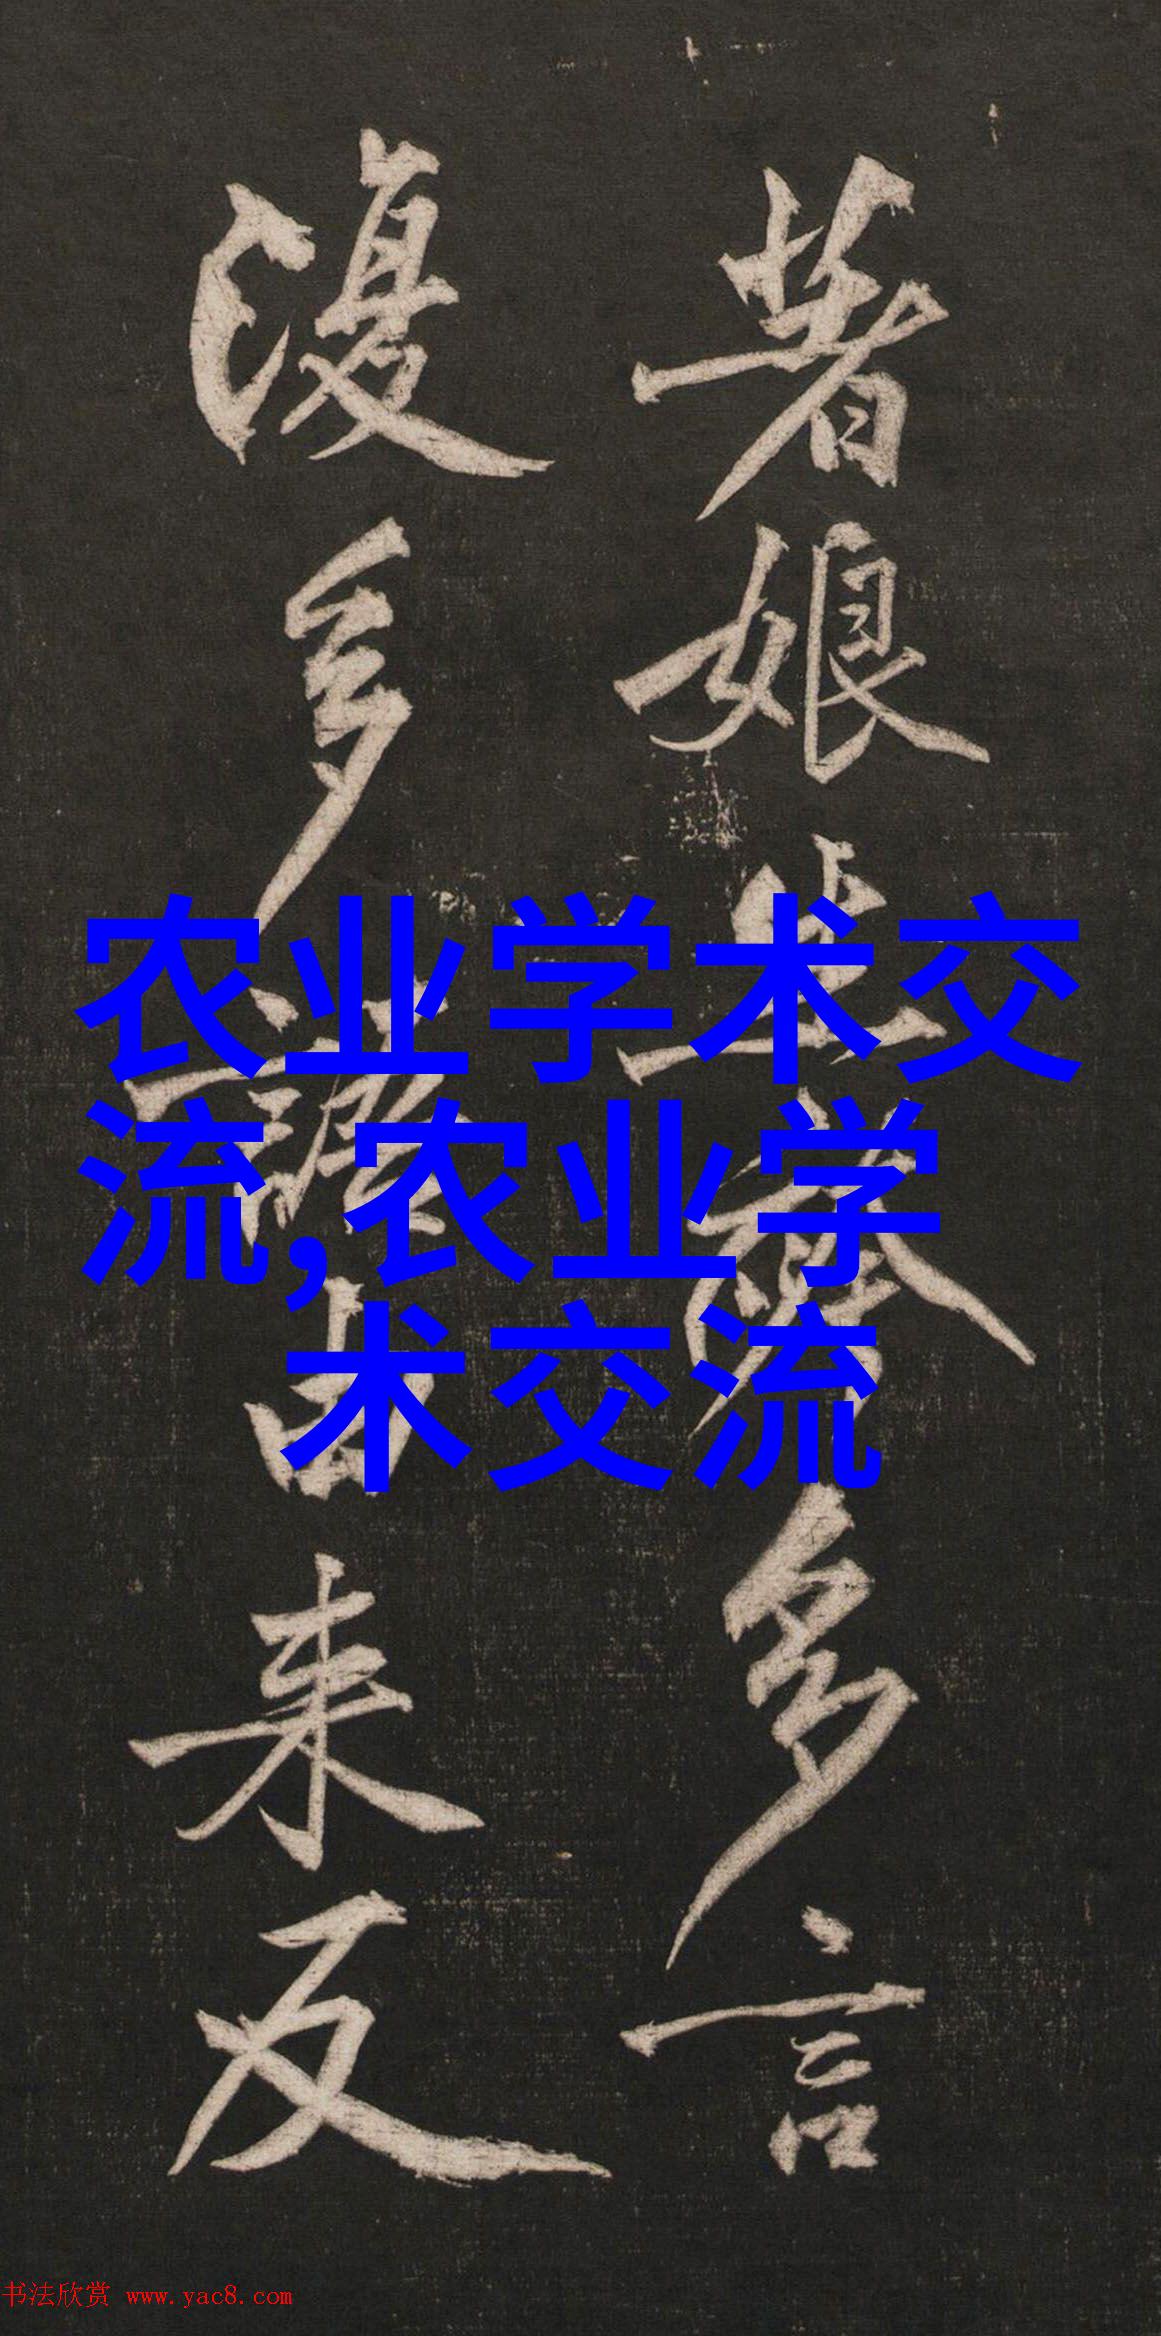 著娘生多言
復多由来反
农业学术交
流,农业学
术交流
书法欣赏 www.yac8.com